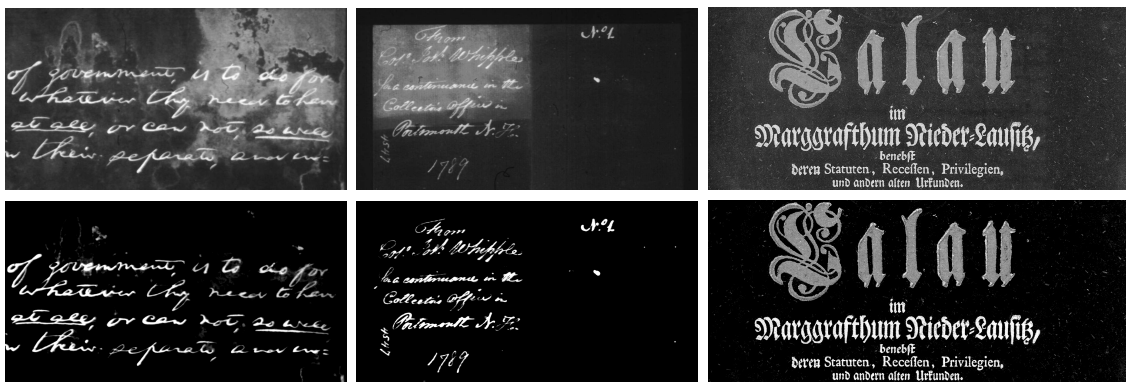 of government, is to do for
whatever they need to have
at all, or can not, so well
in their separate, and in=
From
Col. Jos. Whipple
for a continuance in the
Collector's Office in
Portsmouth N. H.
1789
No. 1
Calau
im
Marggrafthum Nieder-Lausitz,
benebst
deren Statuten, Recessen, Privilegien,
und andern alten Urkunden.
of government, is to do for
whatever they need to have
at all, or can not, so well
in their separate, and in=
From
Col. Jos. Whipple
for a continuance in the
Collector's Office in
Portsmouth N. H.
1789
No. 1
Calau
im
Marggrafthum Nieder-Lausitz,
benebst
deren Statuten, Recessen, Privilegien,
und andern alten Urkunden.